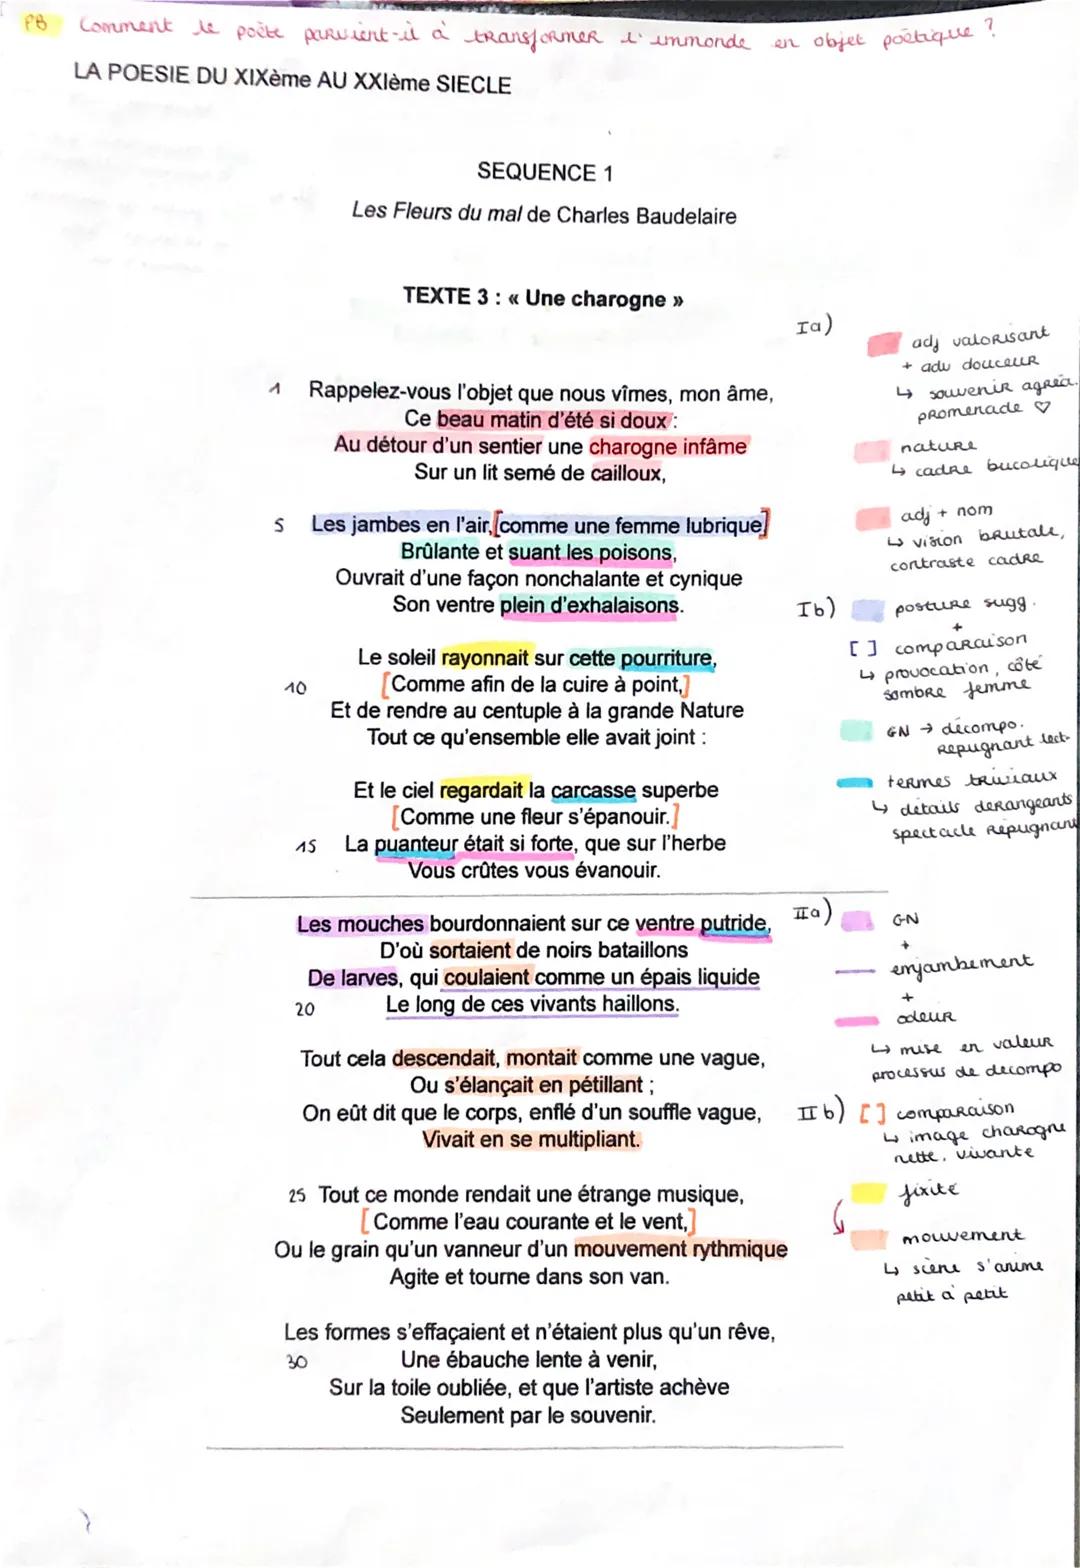 PB Comment le poète parvient-il à transformer l'immonde en objet poétique ?
LA POESIE DU XIXème AU XXIème SIECLE
SEQUENCE 1
Les Fleurs du mal de Charles Baudelaire
TEXTE 3 : « Une charogne »
1 Rappelez-vous l'objet que nous vîmes, mon âme,
Ce beau matin d'été si doux :
Au détour d'un sentier une charogne infâme
Sur un lit semé de cailloux,
5 Les jambes en l'air, [comme une femme lubrique]
Brûlante et suant les poisons,
Ouvrait d'une façon nonchalante et cynique
Son ventre plein d'exhalaisons.
Le soleil rayonnait sur cette pourriture,
10 [Comme afin de la cuire à point,]
Et de rendre au centuple à la grande Nature
Tout ce qu'ensemble elle avait joint :
Et le ciel regardait la carcasse superbe
[Comme une fleur s'épanouir.]
15 La puanteur était si forte, que sur l'herbe
Vous crûtes vous évanouir.
Les mouches bourdonnaient sur ce ventre putride,
D'où sortaient de noirs bataillons
De larves, qui coulaient comme un épais liquide
20 Le long de ces vivants haillons.
Tout cela descendait, montait comme une vague,
Ou s'élançait en pétillant ;
On eût dit que le corps, enflé d'un souffle vague,
Vivait en se multipliant.
25 Tout ce monde rendait une étrange musique,
[Comme l'eau courante et le vent,]
Ou le grain qu'un vanneur d'un mouvement rythmique
Agite et tourne dans son van.
Les formes s'effaçaient et n'étaient plus qu'un rêve,
30 Une ébauche lente à venir,
Sur la toile oubliée, et que l'artiste achève
Seulement par le souvenir.
Ia)
adj valorisant
+ adv douceur
↳ souvenir agréa.
promenade ♡
nature
↳ cadre bucolique
adj + nom
↳ vision brutale,
contraste cadre
Ib) posture sugg.
+
[ ] comparaison
↳ provocation, côté
sombre femme
GN → décompo.
répugnant lect.
termes triviaux
↳ détails dérangeants
spectacle répugnant
IIa) GN
+
enjambement
+
odeur
↳ mise en valeur
processus de décompo
IIb) [ ] comparaison
↳ image charogne
nette, vivante
fixité
mouvement
↳ scène s'anime
petit à petit